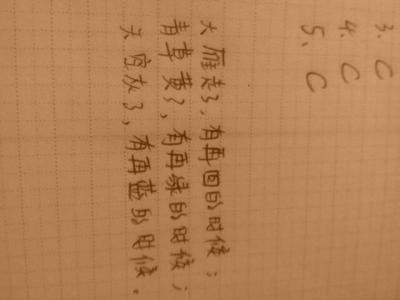 3. C
4. C
5、C
大雁走了，有再回的时候；
青草黄了，有再绿的时候；
天空灰了，有再蓝的时候。